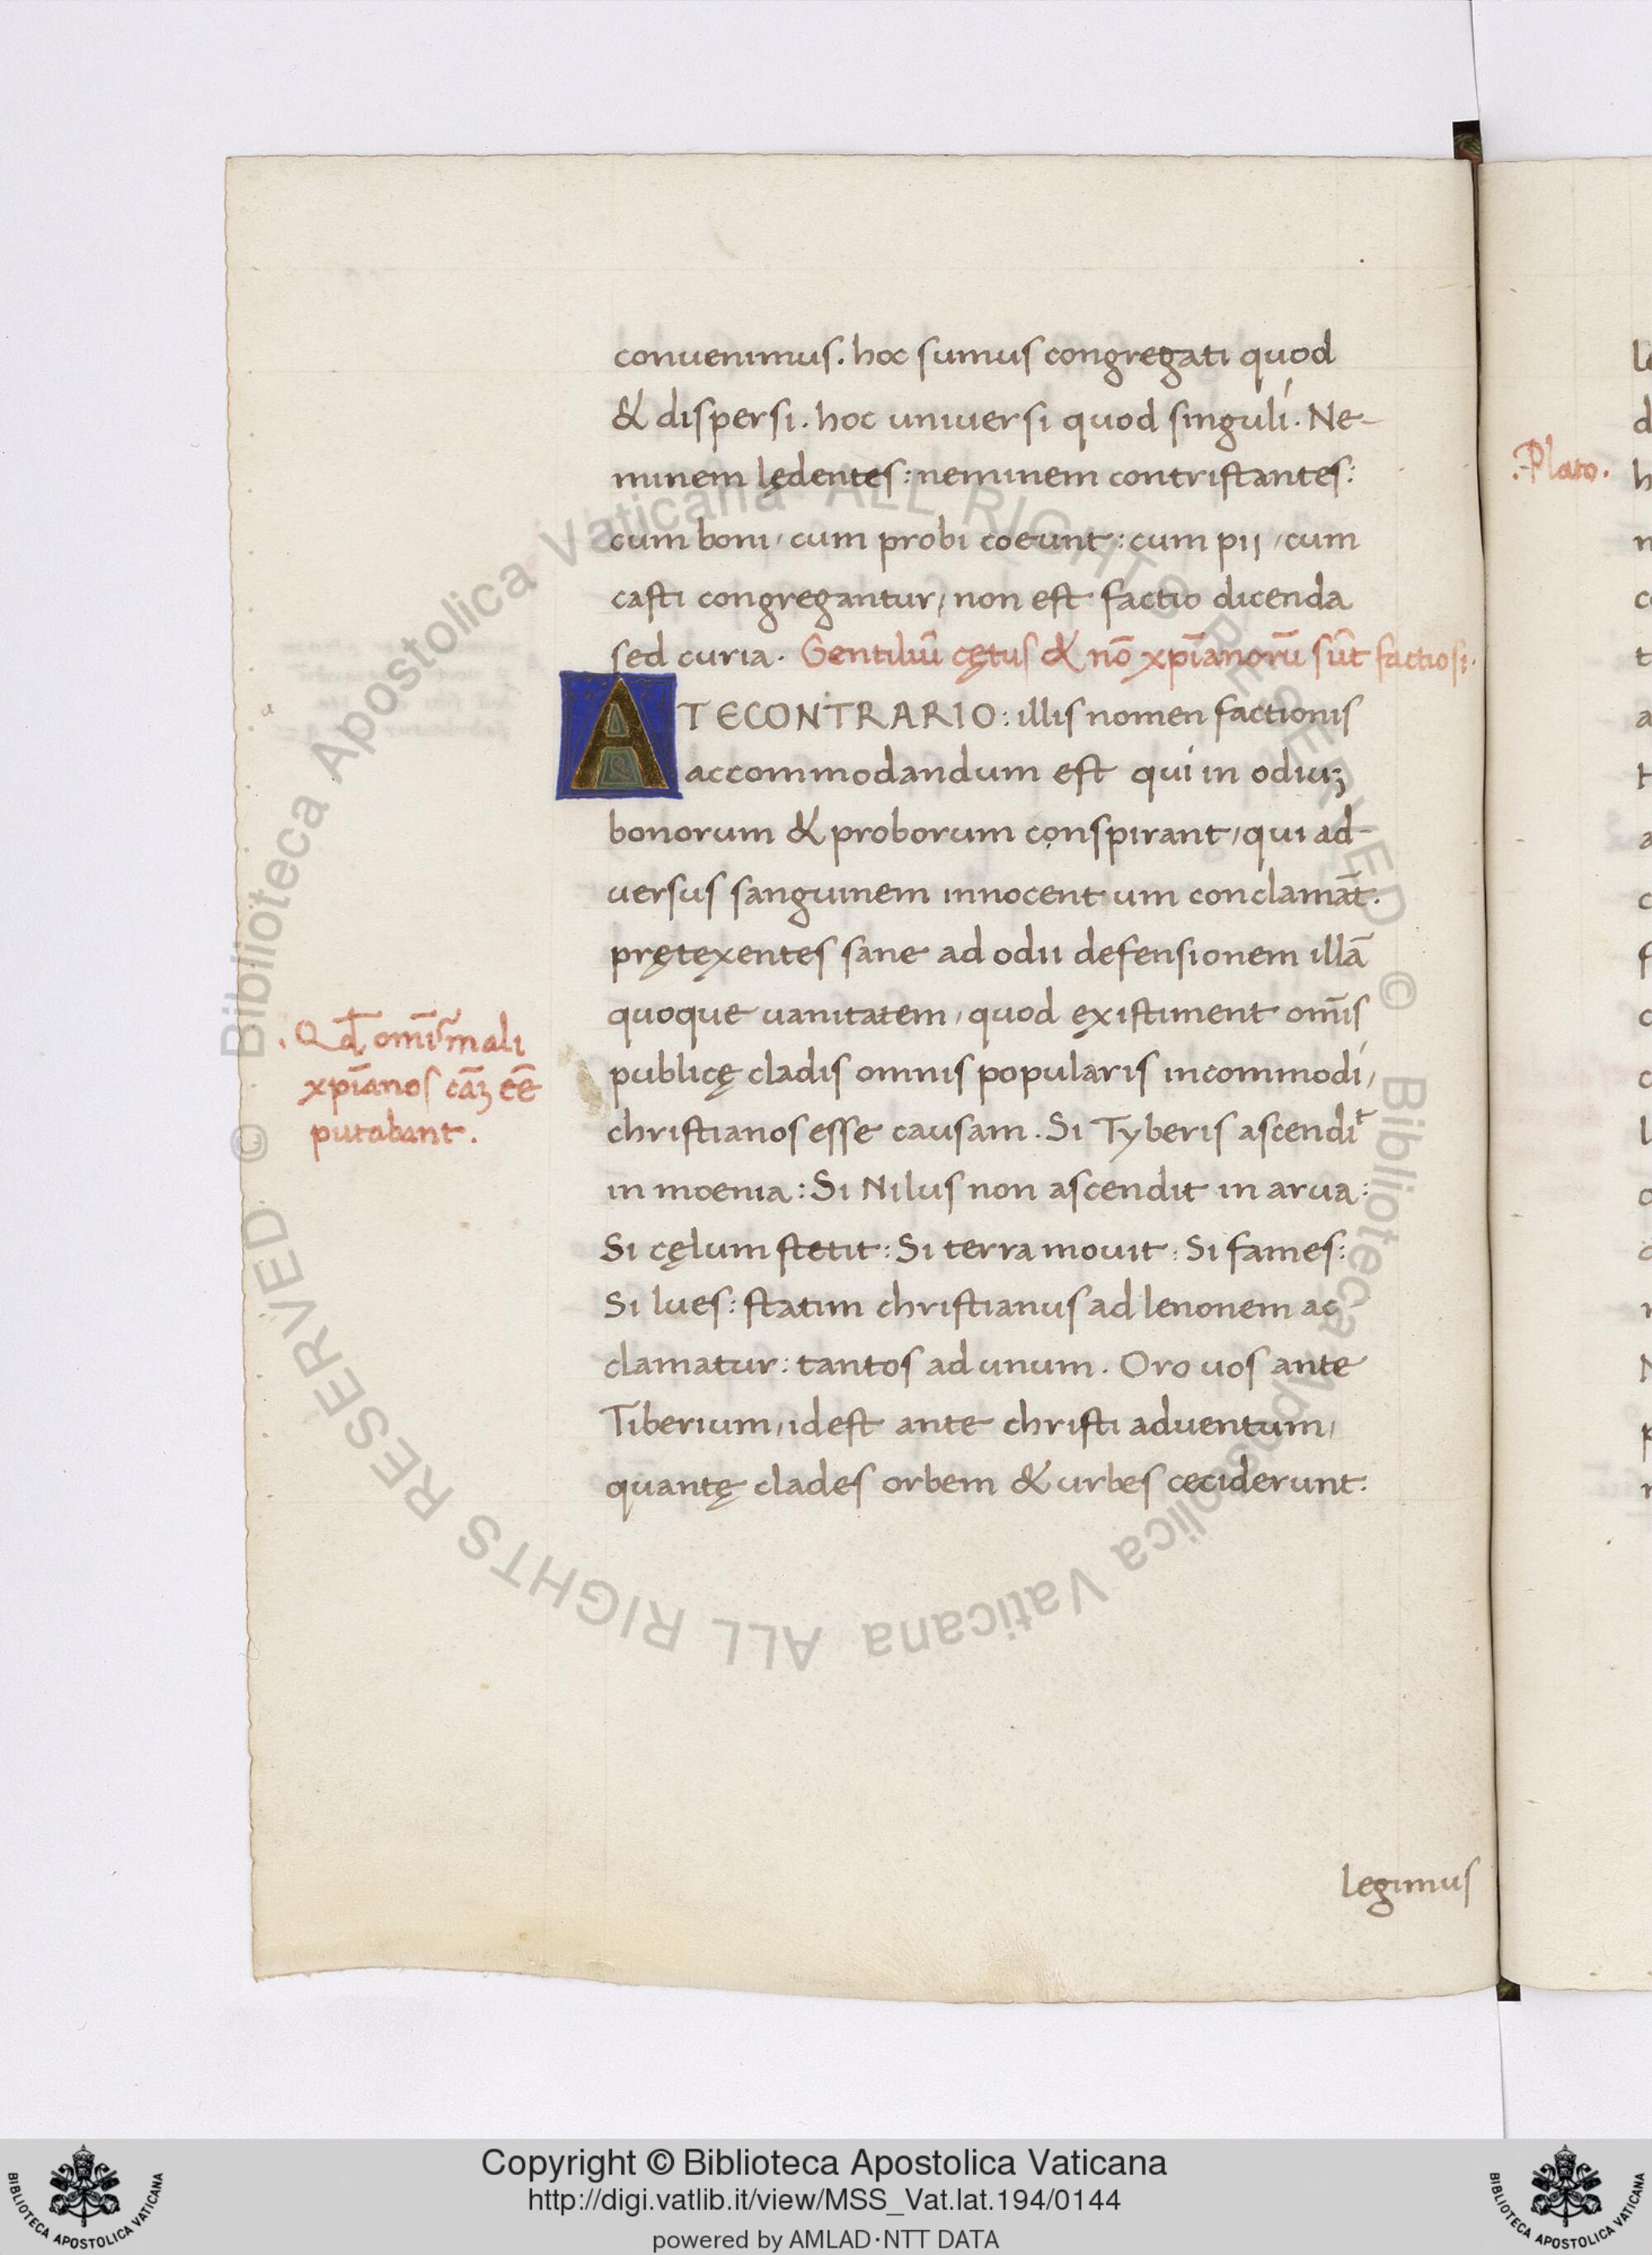 conuenimus. hoc sumus congregati quod
& dispersi. hoc uniuersi quod singuli. Ne-
minem lędentes: neminem contristantes:
cum boni, cum probi coeunt: cum pij, cum
casti congregantur, non est factio dicenda
sed curia. Gentiliū cętus & nō xp̄ianorū sūt factiosi.
AT ECONTRARIO: illis nomen factionis
accommodandum est qui in odiuꝫ
bonorum & proborum conspirant, qui ad-
uersus sanguinem innocentum conclamāt.
prętexentes sane ad odii defensionem illā
quoque uanitatem, quod existiment om̄is
. Qđ omīs mali
xp̄ianos cāꝫ eē
putabant.
publicę cladis omnis popularis incommodi,
christianos esse causam. Si Tyberis ascendit
in moenia: Si Nilus non ascendit in arua:
Si cęlum stetit: Si terra mouit: Si fames:
Si lues: statim christianus ad lenonem ac
clamatur: tantos ad unum. Oro uos ante
Tiberium, id est ante christi aduentum,
quantę clades orbem & urbes ceciderunt.
legimus
.Plato.
Copyright © Biblioteca Apostolica Vaticana
http://digi.vatlib.it/view/MSS_Vat.lat.194/0144
powered by AMLAD·NTT DATA
© Biblioteca Apostolica Vaticana ALL RIGHTS RESERVED
© Biblioteca Apostolica Vaticana ALL RIGHTS RESERVED
BIBLIOTECA APOSTOLICA VATICANA
BIBLIOTECA APOSTOLICA VATICANA